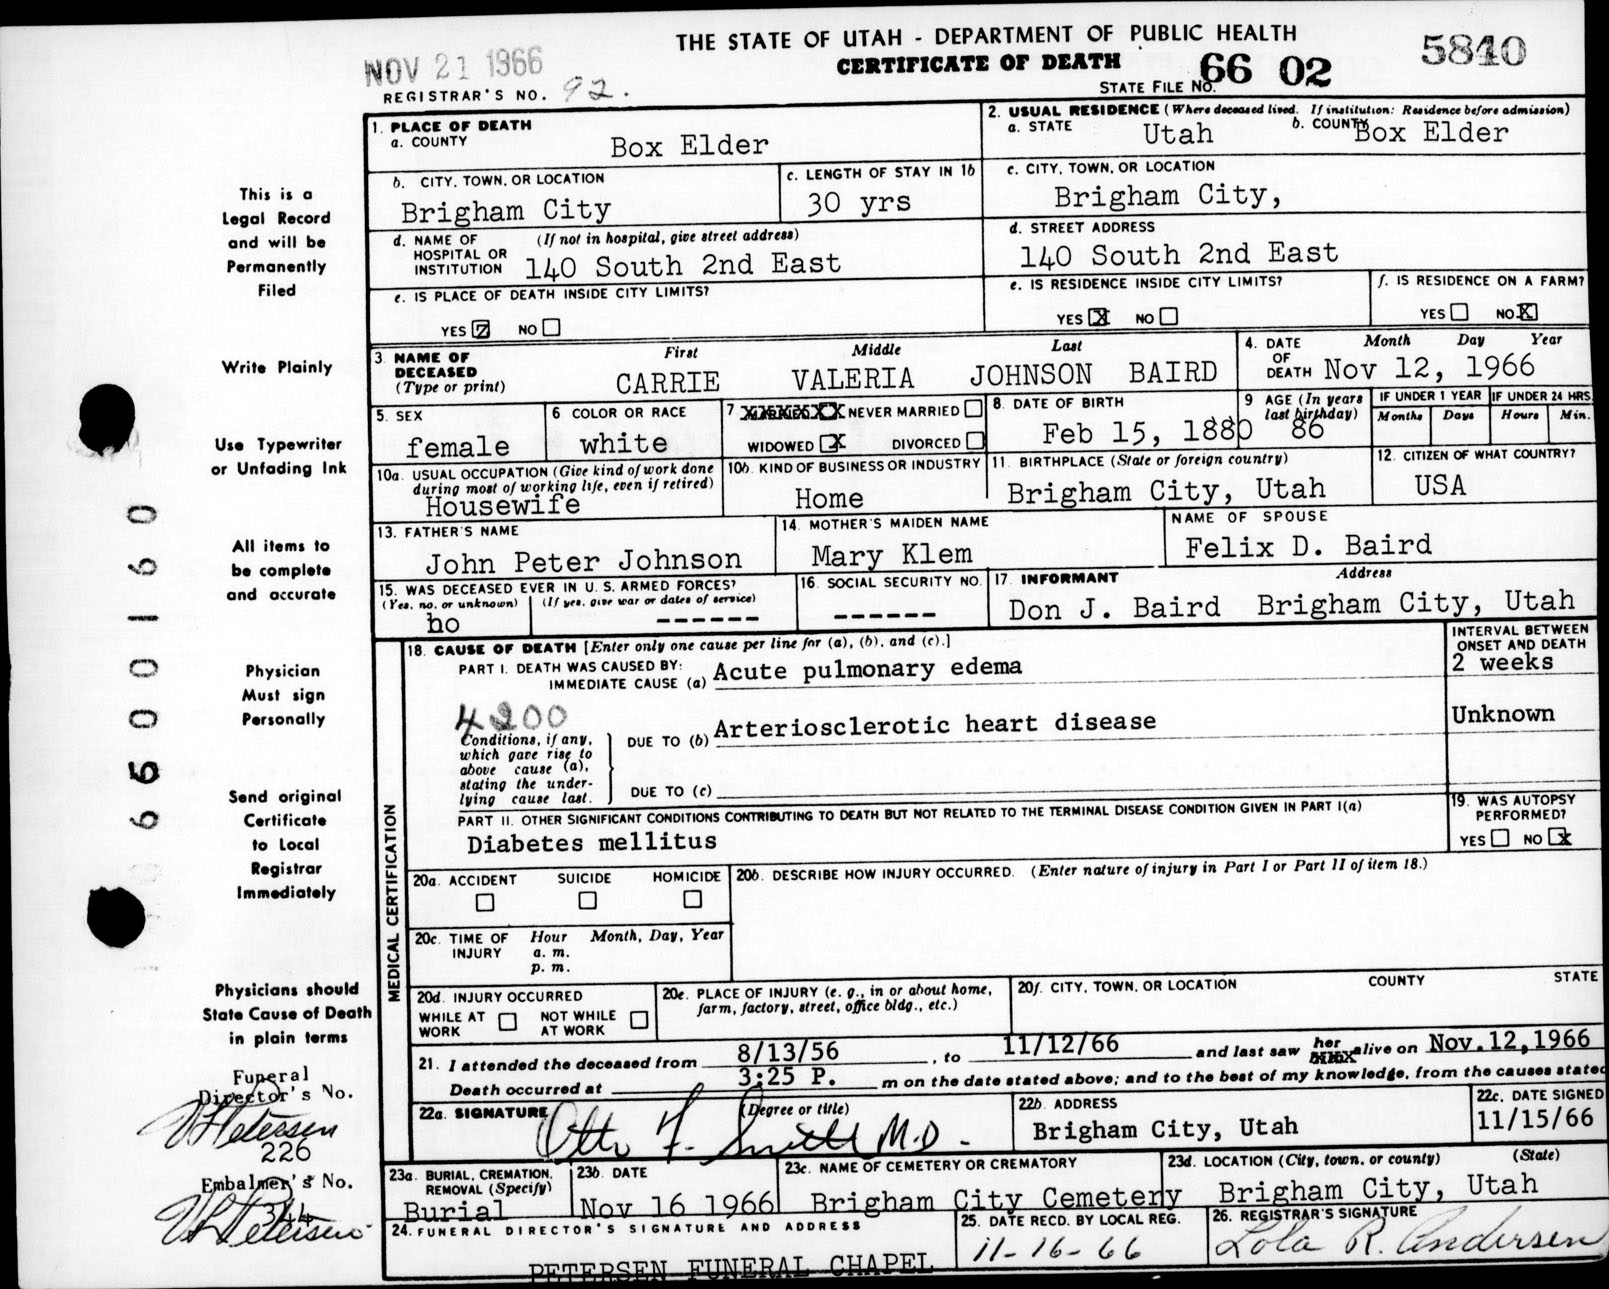 THE STATE OF UTAH - DEPARTMENT OF PUBLIC HEALTH
CERTIFICATE OF DEATH
NOV 21 1966
5840
STATE FILE NO. 66 02
REGISTRAR'S NO. 92.
1. PLACE OF DEATH
a. COUNTY Box Elder
2. USUAL RESIDENCE (Where deceased lived. If institution: Residence before admission)
a. STATE Utah b. COUNTY Box Elder
b. CITY, TOWN, OR LOCATION
Brigham City
c. LENGTH OF STAY IN 1b
30 yrs
c. CITY, TOWN, OR LOCATION
Brigham City,
d. NAME OF HOSPITAL OR INSTITUTION (If not in hospital, give street address)
140 South 2nd East
d. STREET ADDRESS
140 South 2nd East
e. IS PLACE OF DEATH INSIDE CITY LIMITS?
YES NO
e. IS RESIDENCE INSIDE CITY LIMITS?
YES X NO
f. IS RESIDENCE ON A FARM?
YES NO X
3. NAME OF DECEASED (Type or print)
First Middle Last
CARRIE VALERIA JOHNSON BAIRD
4. DATE OF DEATH
Month Day Year
Nov 12, 1966
5. SEX
female
6 COLOR OR RACE
white
7 NEVER MARRIED
WIDOWED X DIVORCED
8. DATE OF BIRTH
Feb 15, 1880
9 AGE (In years last birthday)
86
IF UNDER 1 YEAR
Months Days
IF UNDER 24 HRS.
Hours Min.
10a. USUAL OCCUPATION (Give kind of work done during most of working life, even if retired)
Housewife
10b. KIND OF BUSINESS OR INDUSTRY
Home
11. BIRTHPLACE (State or foreign country)
Brigham City, Utah
12. CITIZEN OF WHAT COUNTRY?
USA
13. FATHER'S NAME
John Peter Johnson
14. MOTHER'S MAIDEN NAME
Mary Klem
NAME OF SPOUSE
Felix D. Baird
15. WAS DECEASED EVER IN U. S. ARMED FORCES?
(Yes, no, or unknown) (If yes, give war or dates of service)
ho ------
16. SOCIAL SECURITY NO.
------
17. INFORMANT Address
Don J. Baird Brigham City, Utah
MEDICAL CERTIFICATION
18. CAUSE OF DEATH [Enter only one cause per line for (a), (b), and (c).]
INTERVAL BETWEEN ONSET AND DEATH
PART I. DEATH WAS CAUSED BY:
IMMEDIATE CAUSE (a) Acute pulmonary edema
2 weeks
4200
Conditions, if any, which gave rise to above cause (a), stating the underlying cause last.
DUE TO (b) Arteriosclerotic heart disease
Unknown
DUE TO (c)
PART II. OTHER SIGNIFICANT CONDITIONS CONTRIBUTING TO DEATH BUT NOT RELATED TO THE TERMINAL DISEASE CONDITION GIVEN IN PART I(a)
Diabetes mellitus
19. WAS AUTOPSY PERFORMED?
YES NO X
20a. ACCIDENT SUICIDE HOMICIDE
20b. DESCRIBE HOW INJURY OCCURRED. (Enter nature of injury in Part I or Part II of item 18.)
20c. TIME OF INJURY Hour Month, Day, Year
a. m.
p. m.
20d. INJURY OCCURRED
WHILE AT WORK NOT WHILE AT WORK
20e. PLACE OF INJURY (e. g., in or about home, farm, factory, street, office bldg., etc.)
20f. CITY, TOWN, OR LOCATION COUNTY STATE
21. I attended the deceased from 8/13/56, to 11/12/66 and last saw her alive on Nov.12,1966
Death occurred at 3:25 P. m on the date stated above; and to the best of my knowledge, from the causes stated
22a. SIGNATURE (Degree or title)
Otto F. Smith M.D.
22b. ADDRESS
Brigham City, Utah
22c. DATE SIGNED
11/15/66
23a. BURIAL, CREMATION, REMOVAL (Specify)
Burial
23b. DATE
Nov 16 1966
23c. NAME OF CEMETERY OR CREMATORY
Brigham City Cemetery
23d. LOCATION (City, town, or county) (State)
Brigham City, Utah
24. FUNERAL DIRECTOR'S SIGNATURE AND ADDRESS
PETERSEN FUNERAL CHAPEL
25. DATE RECD. BY LOCAL REG.
11-16-66
26. REGISTRAR'S SIGNATURE
Lola R. Andersen
This is a
Legal Record
and will be
Permanently
Filed
Write Plainly
Use Typewriter
or Unfading Ink
All items to
be complete
and accurate
Physician
Must sign
Personally
Send original
Certificate
to Local
Registrar
Immediately
Physicians should
State Cause of Death
in plain terms
Funeral
Director's No.
Petersen
226
Embalmer's No.
344
Petersen
66500160